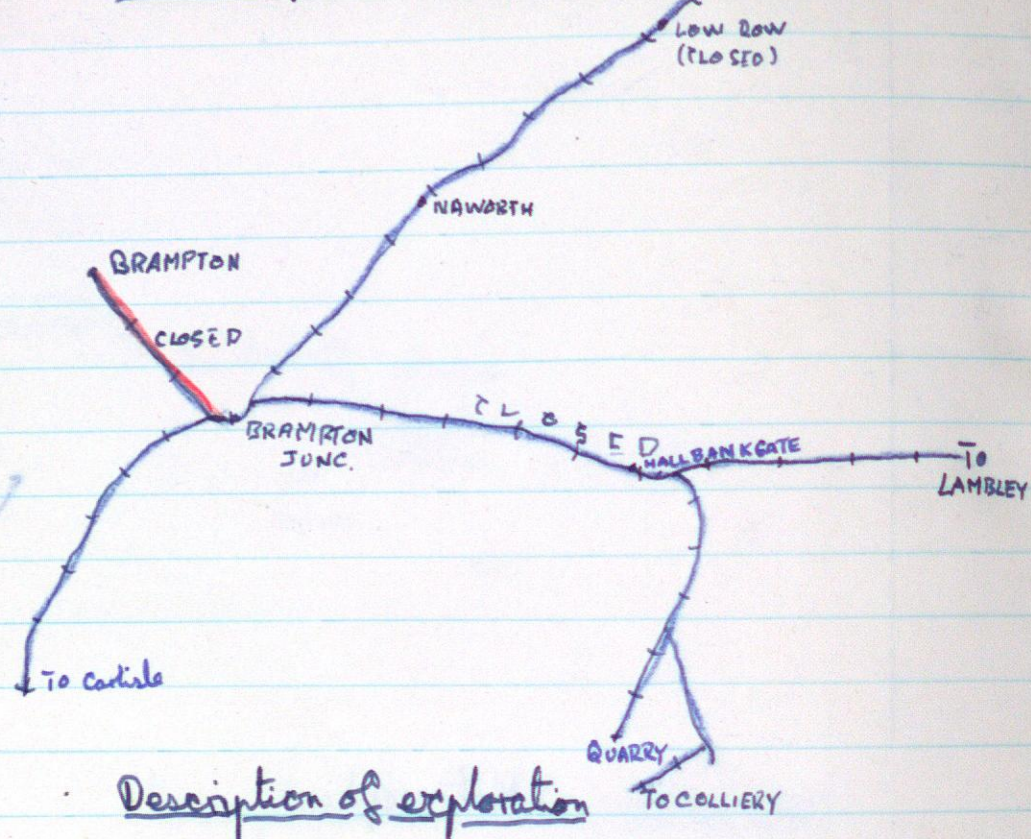 LOW ROW
(CLOSED)
NAWORTH
BRAMPTON
CLOSED
CLOSED
BRAMPTON
JUNC.
HALLBANKGATE
TO
LAMBLEY
To Carlisle
QUARRY
TO COLLIERY
Description of exploration